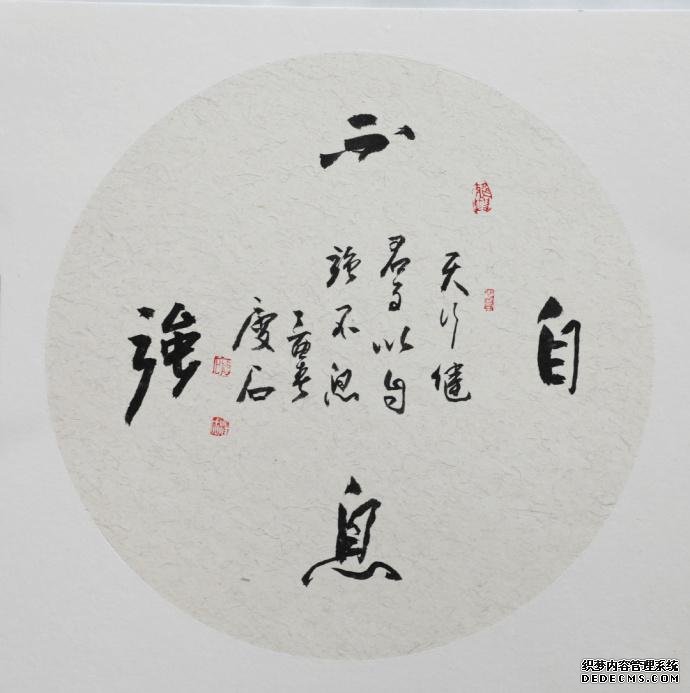 自
強
不
息
天行健
君子以自
強不息
酉春
石
织梦内容管理系统
DEDECMS.COM